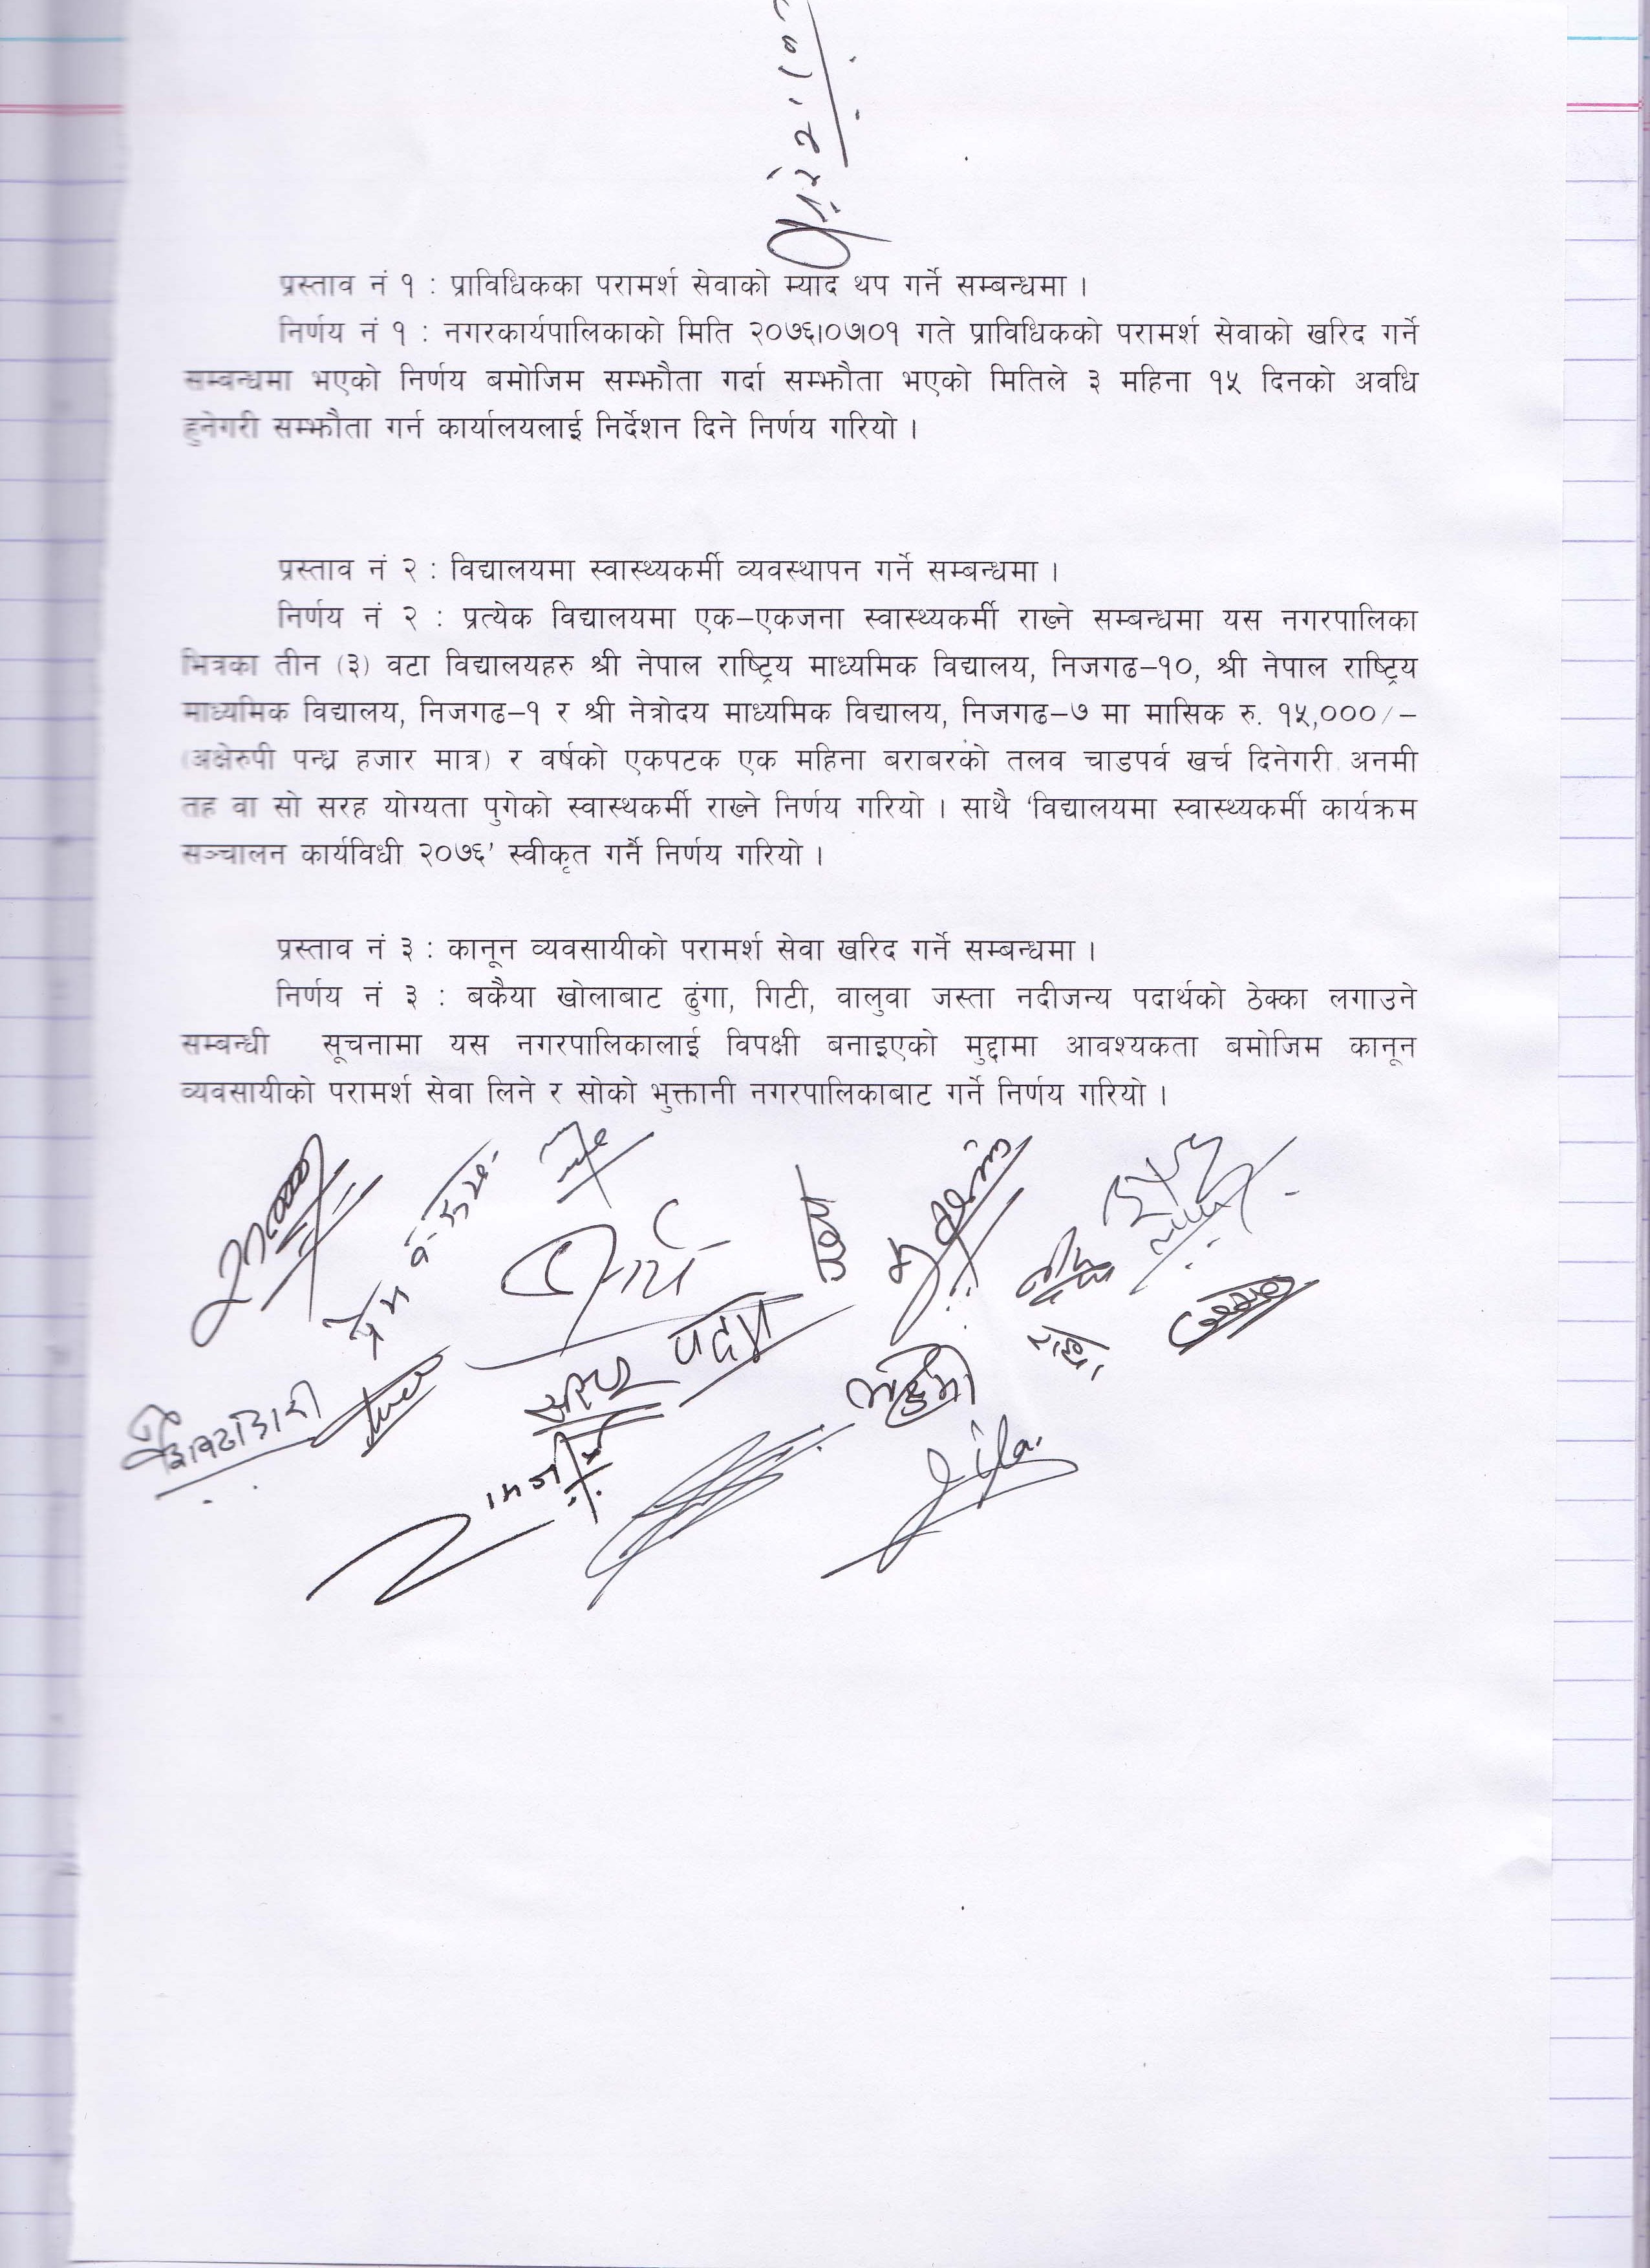 प्रस्ताव नं १ : प्राविधिकका परामर्श सेवाको म्याद थप गर्ने सम्बन्धमा ।
निर्णय नं १ : नगरकार्यपालिकाको मिति २०७६।०७।०१ गते प्राविधिकको परामर्श सेवाको खरिद गर्ने
सम्बन्धमा भएको निर्णय बमोजिम सम्झौता गर्दा सम्झौता भएको मितिले ३ महिना १५ दिनको अवधि
हुनेगरी सम्झौता गर्न कार्यालयलाई निर्देशन दिने निर्णय गरियो ।
प्रस्ताव नं २ : विद्यालयमा स्वास्थ्यकर्मी व्यवस्थापन गर्ने सम्बन्धमा ।
निर्णय नं २ : प्रत्येक विद्यालयमा एक–एकजना स्वास्थ्यकर्मी राख्ने सम्बन्धमा यस नगरपालिका
भित्रका तीन (३) वटा विद्यालयहरु श्री नेपाल राष्ट्रिय माध्यमिक विद्यालय, निजगढ–१०, श्री नेपाल राष्ट्रिय
माध्यमिक विद्यालय, निजगढ–१ र श्री नेत्रोदय माध्यमिक विद्यालय, निजगढ–७ मा मासिक रु. १५,०००/–
(अक्षेरुपी पन्ध्र हजार मात्र) र वर्षको एकपटक एक महिना बराबरको तलव चाडपर्व खर्च दिनेगरी अनमी
तह वा सो सरह योग्यता पुगेको स्वास्थकर्मी राख्ने निर्णय गरियो । साथै ‘विद्यालयमा स्वास्थ्यकर्मी कार्यक्रम
सञ्चालन कार्यविधी २०७६’ स्वीकृत गर्ने निर्णय गरियो ।
प्रस्ताव नं ३ : कानून व्यवसायीको परामर्श सेवा खरिद गर्ने सम्बन्धमा ।
निर्णय नं ३ : बकैया खोलाबाट ढुंगा, गिटी, वालुवा जस्ता नदीजन्य पदार्थको ठेक्का लगाउने
सम्बन्धी सूचनामा यस नगरपालिकालाई विपक्षी बनाइएको मुद्दामा आवश्यकता बमोजिम कानून
व्यवसायीको परामर्श सेवा लिने र सोको भुक्तानी नगरपालिकाबाट गर्ने निर्णय गरियो ।